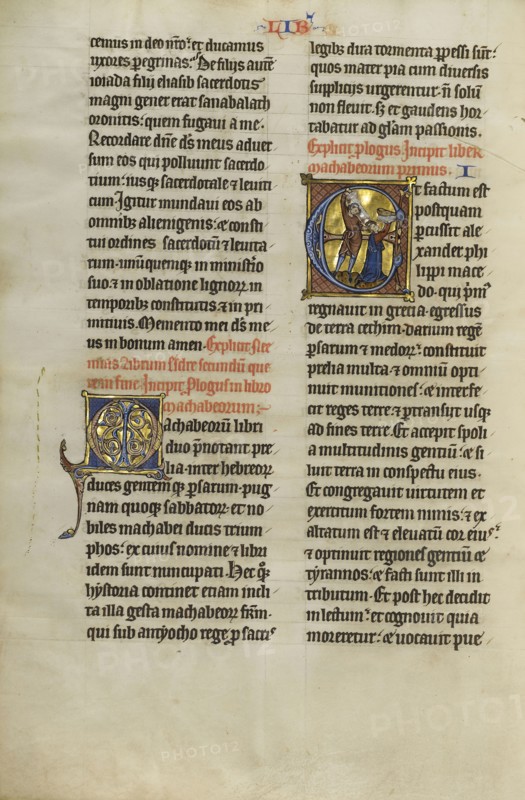 LIB
cemus in deo nr̄o: et ducamus
uxores peregrinas: De filijs autē
ioiada filij eliasib sacerdotis
magni gener erat sanabalath
oronitis: quem fugavi a me.
Recordare dn̄e ds̄ meus adver
sum eos qui polluunt sacerdo
tium: iusq; sacerdotale ⁊ leviti
cum. Igitur mundavi eos ab
omnibȝ alienigenis: ⁊ consti
tui ordines sacerdotū ⁊ levita
rum: unūquemq; in ministerio
suo: ⁊ in oblatione lignorꝝ in
temporibȝ constitutis: ⁊ in pri
mitivis. Memento mei ds̄ me
us in bonum amen. Explicit
Incipit Plogus in libro
Machabeorum:
Machabeorū libri
duo p̄notant pre
lia: inter hebreorꝝ
duces gentemqȝ ꝑsarum: pug
nam quoqȝ sabbatorꝝ: et no
biles machabei ducis trium
phos: ex cuius nomine ⁊ libri
idem sunt nuncupati. Hec qqȝ
hystoria continet etiam incli
ta illa gesta machabeorꝝ frm̄:
qui sub antyocho rege ꝑ sacris
legibȝ dira tormenta ꝑpessi sunt:
quos mater pia cum diversis
suplicijs urgerentur: n̄ solū
non flevit: sȝ et gaudens hor
tabatur ad glām passionis.
Explicit plogus. Incipit liber
machabeorum primus. I
Et factum est
postquam
ꝑcussit ale
xander phi
lippi mace
do: qui pm̄ꝰ
regnavit in grecia: egressus
de terra cethim: darium regē
ꝑsarum ⁊ medorꝝ: constituit
prelia multa: ⁊ omniū opti
nuit munitiones: ⁊ interfe
cit reges terre: ⁊ ptransijt usqȝ
ad fines terre. Et accepit spoli
a multitudinis gentiū: ⁊ si
luit terra in conspectu eius.
Et congregavit virtutem et
exercitum fortem nimis: ⁊ ex
altatum est ⁊ elevatū cor eiꝰ:
⁊ optinuit regiones gentiū ⁊
tyrannos: ⁊ facti sunt illi in
tributum. Et post hec decidit
in lectum: et cognovit quia
moreretur: ⁊ vocavit pue
PHOTO12